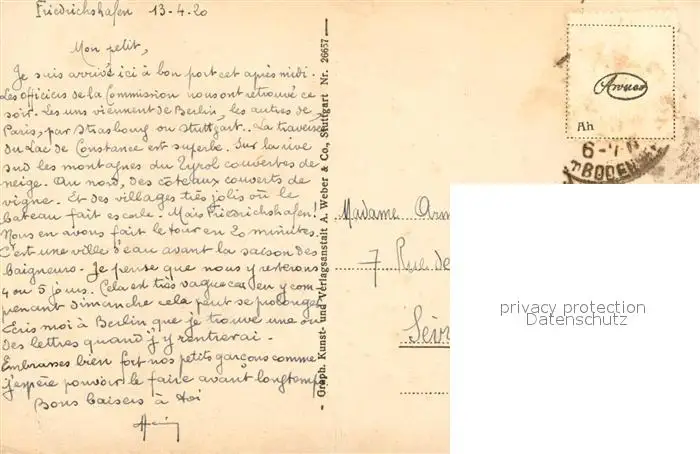 Friedrichshafen 13-4-20
Mon petit,
Je suis arrivé ici à bon port cet après midi.
Les officiers de la Commission nous ont retrouvé ce
soir. Les uns viennent de Berlin, les autres de
Paris, par Strasbourg ou Stuttgart. La traversée
du Lac de Constance est superbe. Sur la rive
sud les montagnes du Tyrol couvertes de
neige. Au nord, des côteaux couverts de
vigne. Et des villages très jolis où le
bateau fait escale. Mais Friedrichshafen!
Nous en avons fait le tour en 20 minutes.
C'est une ville d'eau avant la saison des
baigneurs. Je pense que nous y resterons
4 ou 5 jours. Cela est très vague car en y com-
prenant dimanche cela peut se prolonger
Ecris moi à Berlin que je trouve une ou
des lettres quand j'y rentrerai.
Embrasses bien fort nos petits garçons comme
j'espère pouvoir le faire avant longtemps
Bons baisers à toi
Graph. Kunst- und Verlagsanstalt A. Weber & Co., Stuttgart Nr. 26657
Ah
6-7 N
BODEN
Madame Arm
7 Rue de
Sèvr
privacy protection
Datenschutz